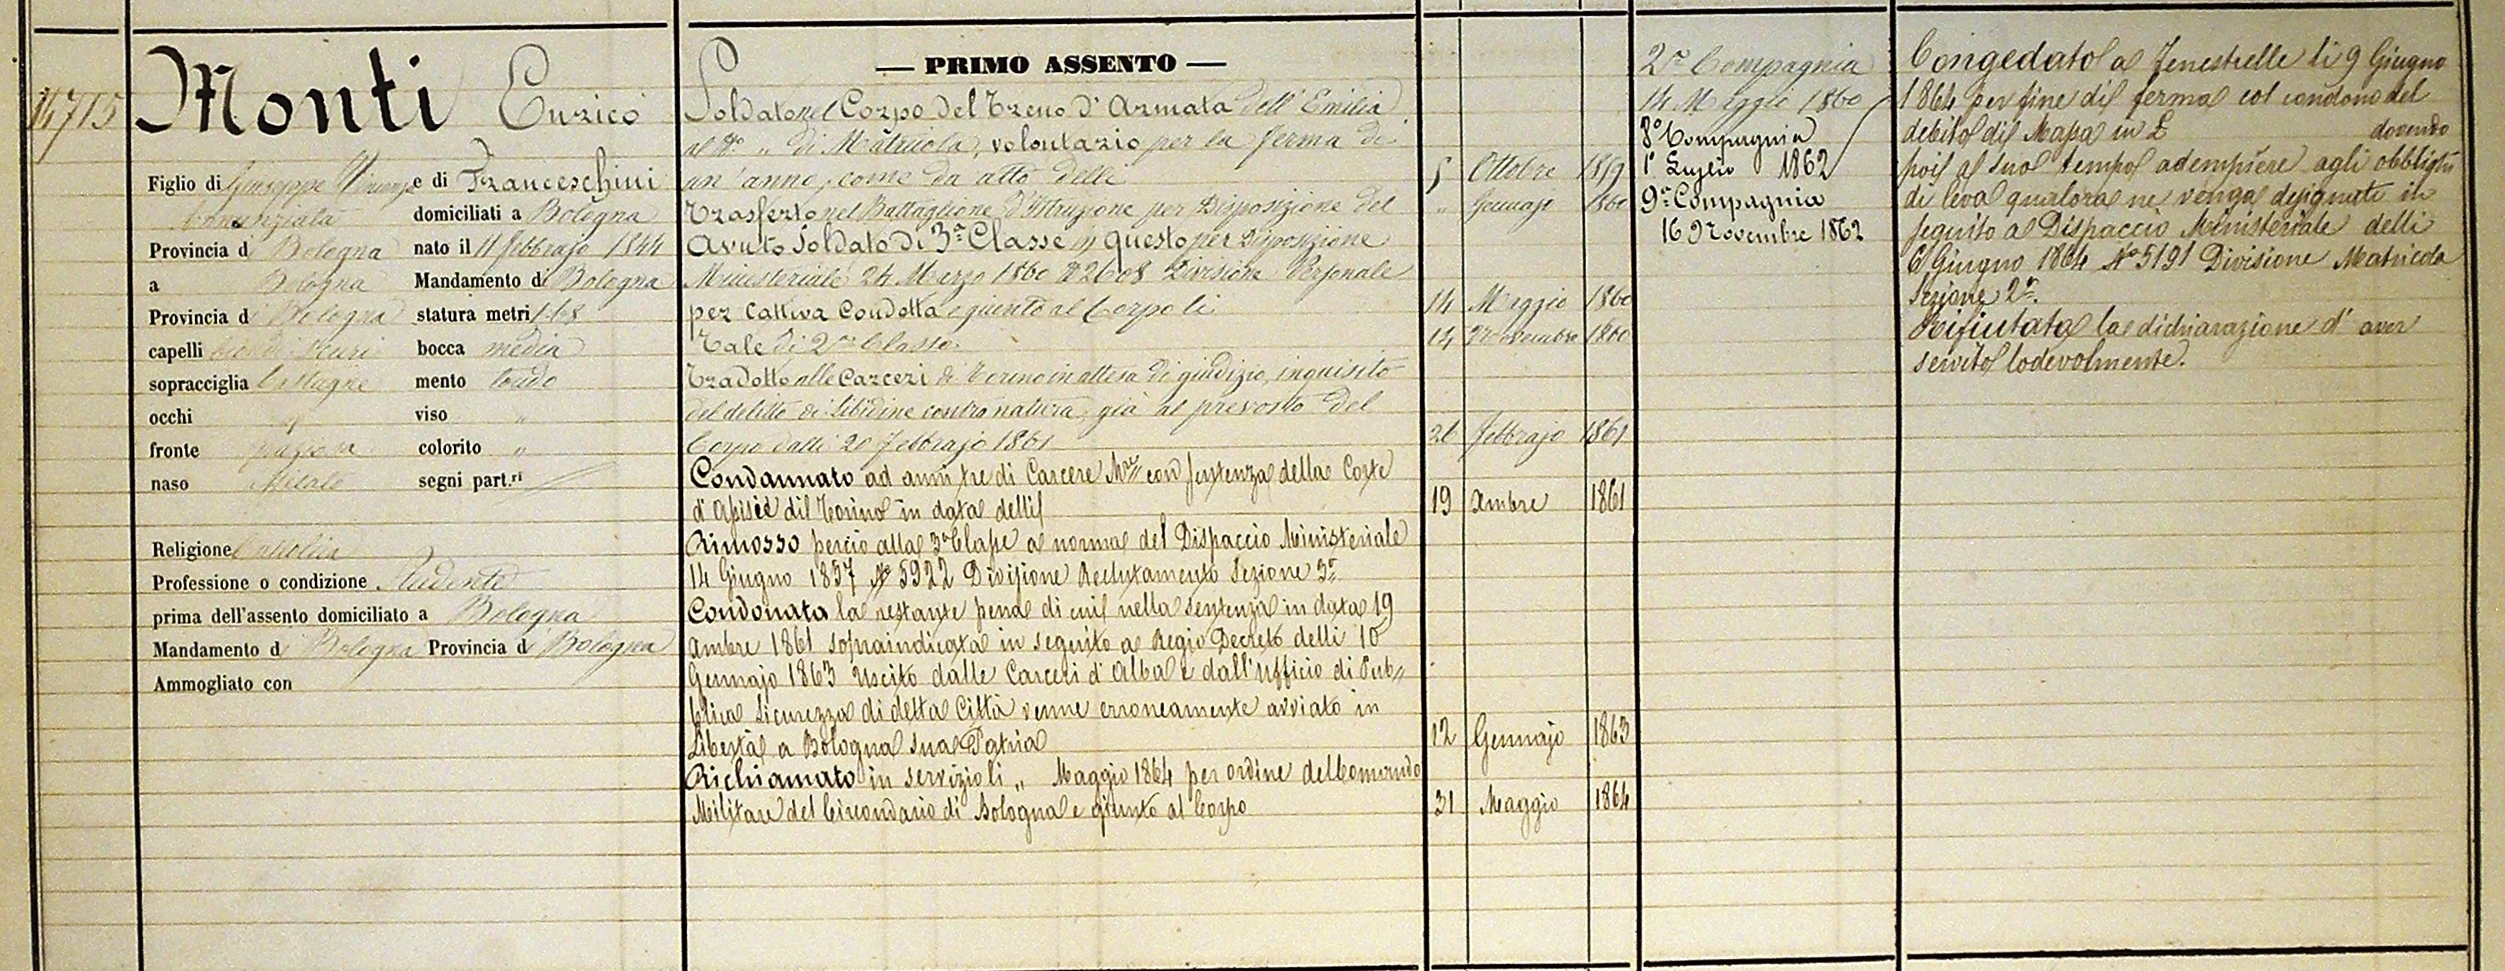 14715
Monti Enrico
Figlio di Giuseppe Vincenzo e di Franceschini
Annunziata domiciliati a Bologna
Provincia di Bologna nato il 11 febbrajo 1844
a Bologna Mandamento di Bologna
Provincia di Bologna statura metri 1.68
capelli biondi scuri bocca media
sopracciglia Castagne mento tondo
occhi " viso "
fronte spaziosa colorito "
naso segni part.ri
Religione Cattolica
Professione o condizione Studente
prima dell'assento domiciliato a Bologna
Mandamento di Bologna Provincia di Bologna
Ammogliato con
— PRIMO ASSENTO —
Soldato nel Corpo del Treno d'Armata dell'Emilia
al N.o " di Matricola, volontario per la ferma di
un'anno, come da atto delli 5 Ottobre 1859
Trasferto nel Battaglione d'Istruzione per Disposizione del " Gennajo 1860
Avuto Soldato di 3a Classe in questo per Disposizione
Ministeriale 24 Marzo 1860 No 2608 Divisione Personale
per Cattiva Condotta e giunto al Corpo li 14 Maggio 1860
Tale di 2a Classe 14 Novembre 1860
Tradotto alle Carceri di Torino in attesa di giudizio, inquisito
del delitto di libidine contro natura, già al prevosto del
Corpo dalli 20 Febbrajo 1861 26 febbrajo 1861
Condannato ad anni tre di Carcere Mre con sentenza della Corte
d'Assisie di Torino in data delli 19 Xmbre 1861
Rimosso perciò alla 3a Classe a norma del Dispaccio Ministeriale
14 Giugno 1857 No 5922 Divisione Reclutamento Sezione 3a
Condonata la restante pena di cui nella sentenza in data 19
Xmbre 1861 sopraindicata in seguito a Regio Decreto delli 10
Gennajo 1863 uscito dalle Carceri d'Alba e dall'ufficio di Pub"
blica Sicurezza di detta Città venne erroneamente avviato in
Libertà a Bologna sua Patria 12 Gennajo 1863
Richiamato in servizio li " Maggio 1864 per ordine del Comando
Militare del Circondario di Bologna e giunto al Corpo 31 Maggio 1864
2a Compagnia
14 Maggio 1860
8a Compagnia
1o Luglio 1862
9a Compagnia
16 Novembre 1862
Congedato a Fenestrelle li 9 Giugno
1864 per fine di ferma col condono del
debito di Massa in £ dovendo
poi a suo tempo adempiere agli obblighi
di leva qualora ne venga designato in
seguito a Dispaccio Ministeriale delli
6 Giugno 1864 No 5191 Divisione Matricola
Sezione 2a.
Rifiutata la dichiarazione d'aver
servito lodevolmente.